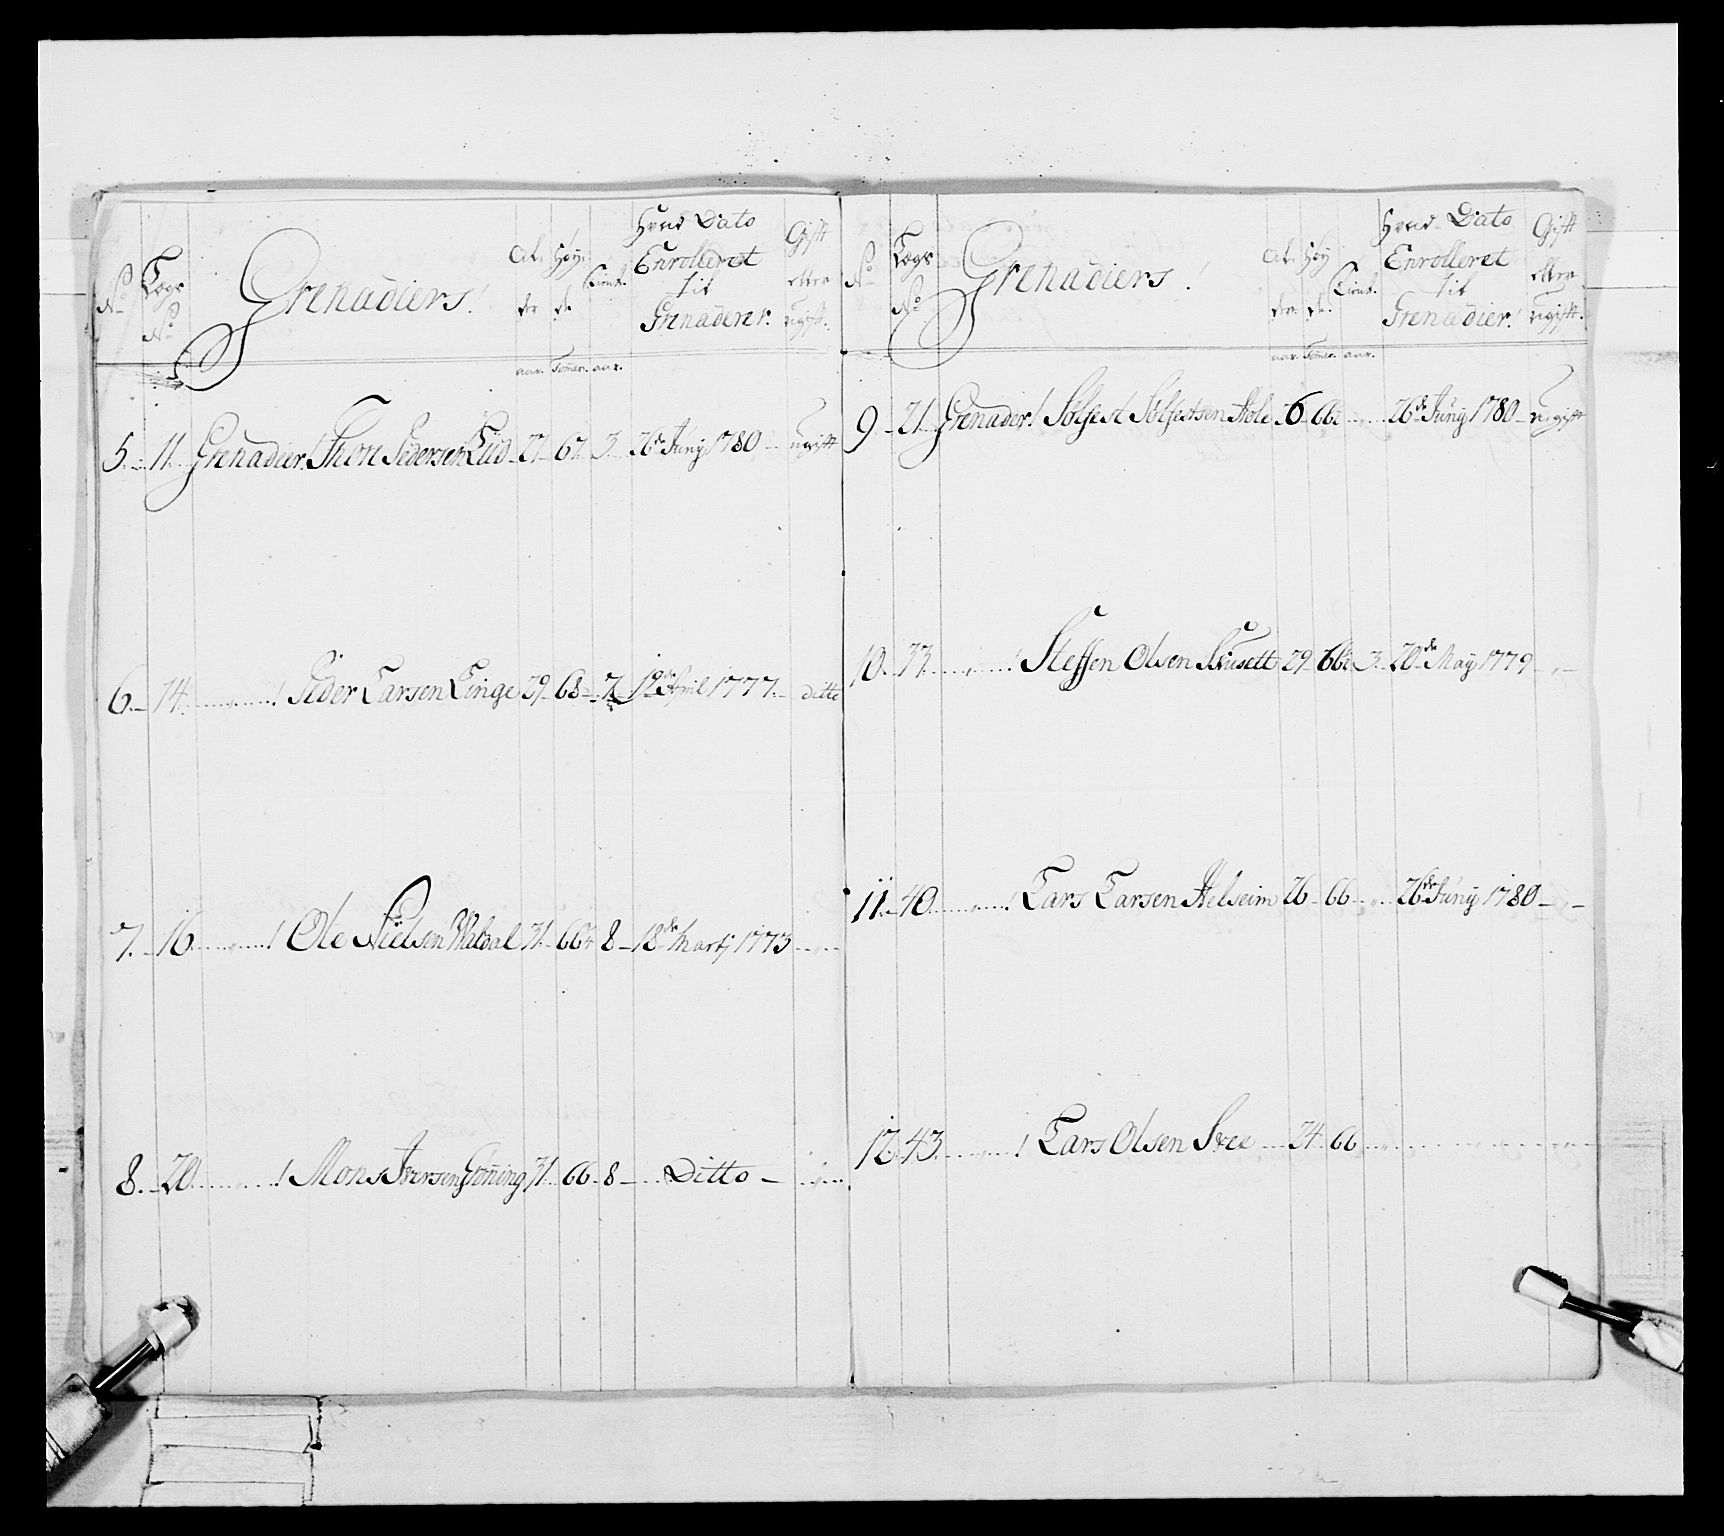 No Lægs No Grenadiers! Al- der Høy- de Tient. Hvad Dato Enrolleret til Grenaderer. Gift eller ugift.
aar. Tomer. aar.
5. 11. Grenadeer. Thore Pedersen Lid 27 67. 3. 26de Junÿ 1780 ugift
6. 14. ! Peder Larsen Linge 29 68 7 19de April 1777. ditto
7. 16. ! Ole Nielsen Waldal 31 66½ 8 18de Martj 1773
8. 20. ! Mons Iversen Grøning 31 66 8 Ditto
No Lægs No Grenadiers! Al- der. Høy de. Tient. Hvad Dato Enrolleret til Grenadier! Gift eller ugift.
aar. Tomer. aar.
9 21 Grenader! Solfest Solfestsen Hole 66½ 26de Junÿ 1780 ugift
10. 33. ! Steffen Olsen 29 66½ 3. 20de Maÿ 1779
11. 40. ! Lars Larsen Helseim 26 66 26de Junÿ 1780
12. 43. ! Lars Olsen 24 66